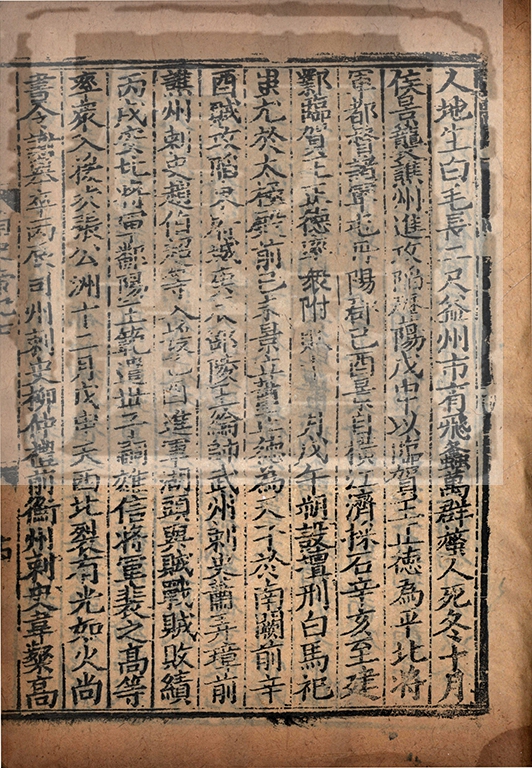 人地生白毛長二尺益州市有飛蟲萬群螫人死冬十月
侯景襲譙州進攻陷歷陽戊申以臨賀王正德為平北將
軍都督諸軍屯丹陽郡己酉景自橫江濟採石辛亥至建
鄴臨賀王正德率衆附賊十一月戊午朔設壇刑白馬祀
蚩尤於太極殿前己未景立蕭正德為天子於南闕前辛
酉賊攻陷東府城庚辰邵陵王綸帥武州刺史蕭弄璋前
譙州刺史趙伯超等入援乙酉進軍湖頭與賊戰賊敗績
丙戌安北將軍鄱陽王範遣世子嗣雄信將軍裴之高等
率衆入援次於張公洲十二月戊申天西北裂有光如火尚
書令謝舉卒丙辰司州刺史柳仲禮前衡州刺史韋粲高